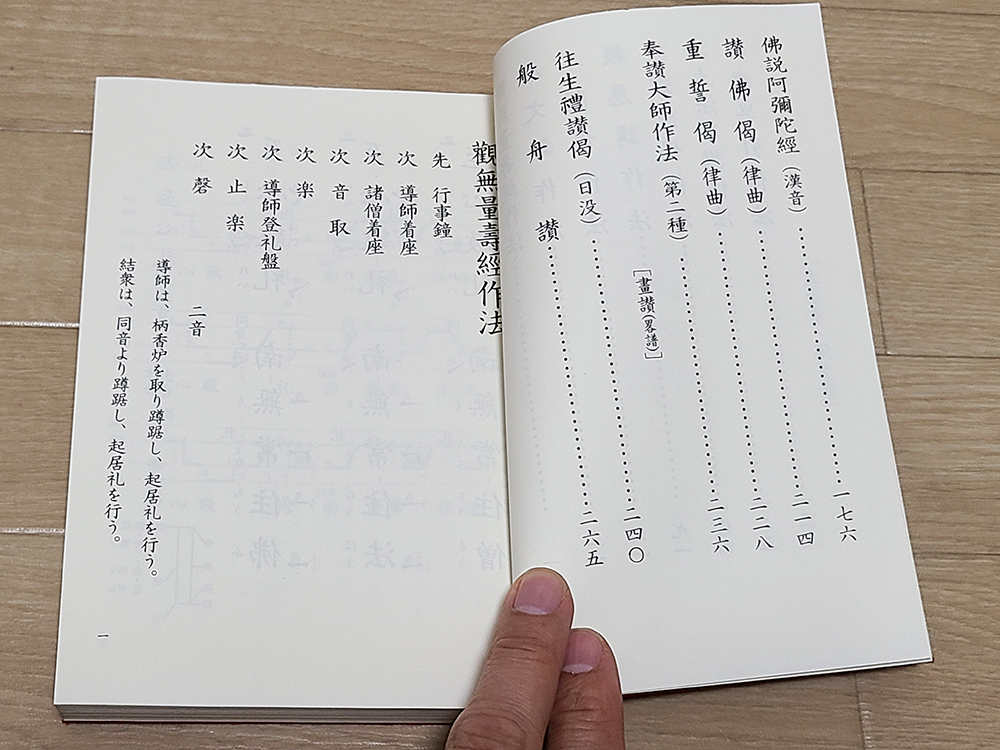 佛説阿彌陀經（漢音）……………………一七六
讃佛偈（律曲）……………………二一四
重誓偈（律曲）……………………二二八
奉讃大師作法（第二種）……………………二三六
［畫讃（畧譜）］
往生禮讃偈（日没）……………………二四〇
般舟讃……………………二六五
觀無量壽經作法
先 行事鐘
次 導師着座
次 諸僧着座
次 音取
次 楽
次 導師登礼盤
次 止楽
次 磬 二音
導師は、柄香炉を取り蹲踞し、起居礼を行う。
結衆は、同音より蹲踞し、起居礼を行う。
一